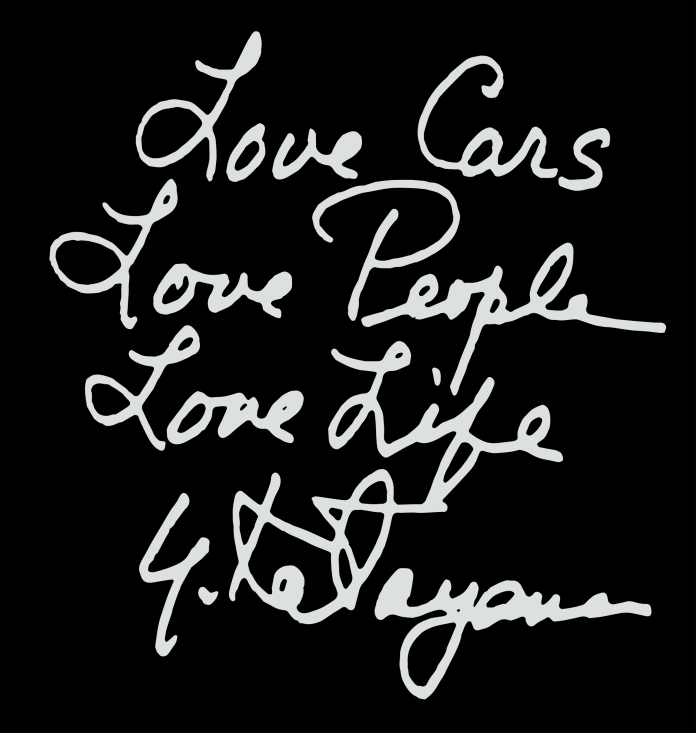 Love Cars
Love People
Love Life
Y. Katayama